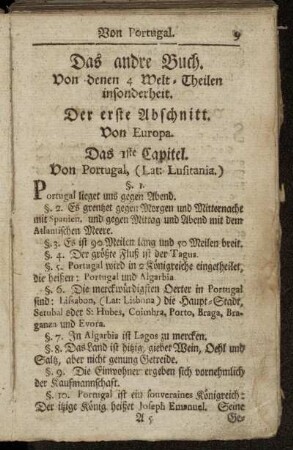 Von Portugal. 9
Das andre Buch.
Von denen 4 Welt-Theilen
insonderheit.
Der erste Abschnitt.
Von Europa.
Das 1ste Capitel.
Von Portugal, (Lat: Lusitania.)
§. 1.
Portugal lieget uns gegen Abend.
§. 2. Es grentzet gegen Morgen und Mitternacht
mit Spanien, und gegen Mittag und Abend mit dem
Atlantischen Meere.
§. 3. Es ist 90 Meilen lang und 50 Meilen breit.
§. 4. Der größte Fluß ist der Tagus.
§. 5. Portugal wird in 2 Königreiche eingetheilet,
die heißen: Portugal und Algarbia.
§. 6. Die merckwürdigsten Oerter in Portugal
sind: Lissabon, (Lat: Lisbona) die Haupt-Stadt,
Setubal oder S: Hubes, Coimbra, Porto, Braga, Bra-
ganza und Evora.
§. 7. In Algarbia ist Lagos zu mercken.
§. 8. Das Land ist hitzig, giebet Wein, Oehl und
Saltz, aber nicht genung Getreide.
§. 9. Die Einwohner ergeben sich vornehmlich
der Kaufmannschaft.
§. 10. Portugal ist ein souveraines Königreich:
Der itzige König heißet Joseph Emanuel. Seine
A 5 Ge-